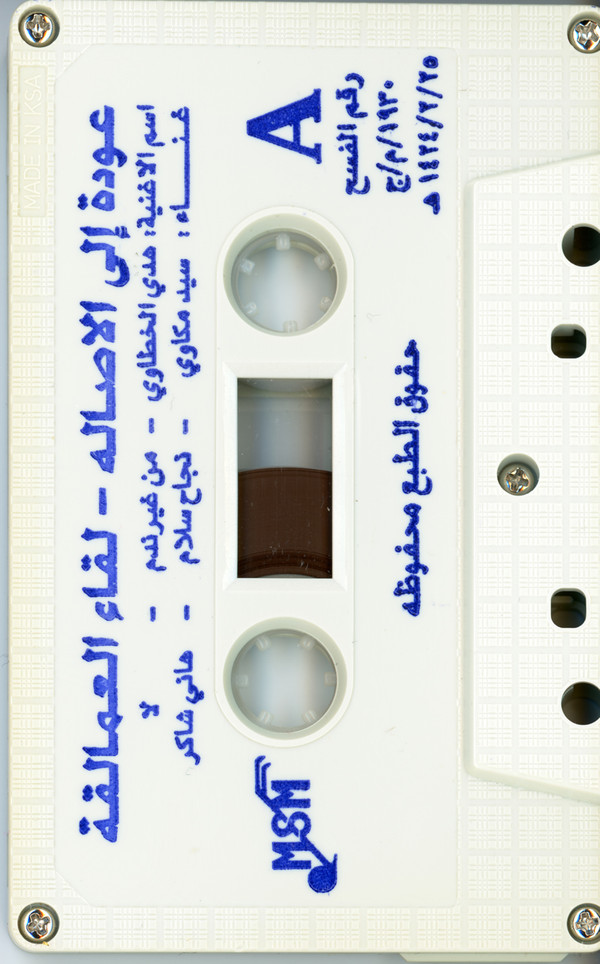 عودة إلى الاصاله - لقاء العمالقة
اسم الاغنية: هدي الخطاوي - من غير ندم - لا
غنـــــاء: سيد مكاوي - نجاح سلام - هاني شاكر
A
رقم الفسح
١٩٣٠/م/ج
١٤٢٤/٢/٢٥ هـ
حقوق الطبع محفوظه
MSM
MADE IN KSA